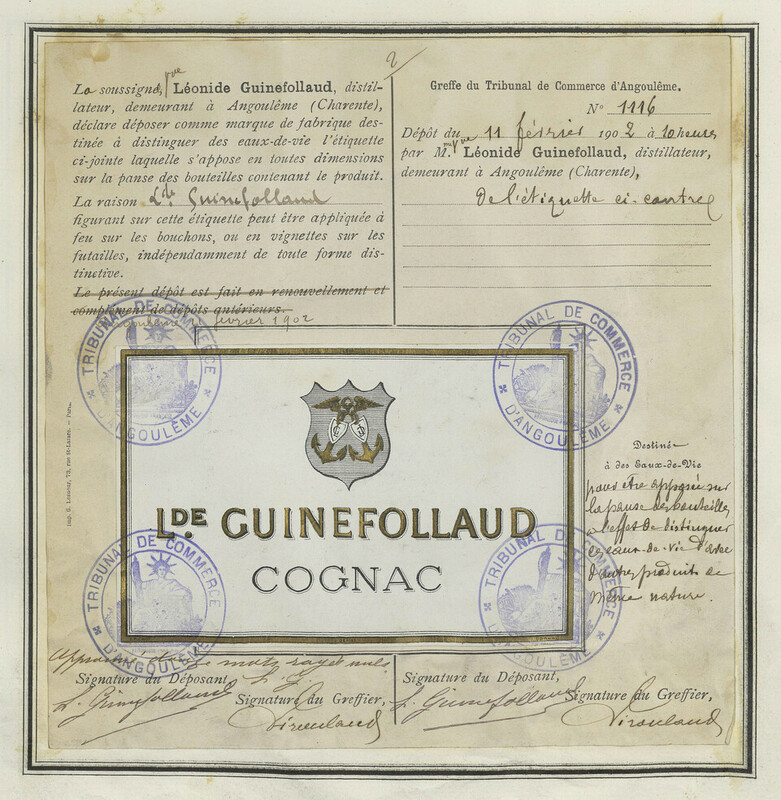 2
La soussigné, Vve Léonide Guinefollaud, distil-
lateur, demeurant à Angoulême (Charente),
déclare déposer comme marque de fabrique des-
tinée à distinguer des eaux-de-vie l'étiquette
ci-jointe laquelle s'appose en toutes dimensions
sur la panse des bouteilles contenant le produit.
La raison Lde Guinefollaud
figurant sur cette étiquette peut être appliquée à
feu sur les bouchons, ou en vignettes sur les
futailles, indépendamment de toute forme dis-
tinctive.
Le présent dépôt est fait en renouvellement et
complément de dépôts antérieurs.
Angoulême février 1902
Greffe du Tribunal de Commerce d'Angoulême.
No 1116
Dépôt du 11 février 1902 à 10 heures
par M. Vve Léonide Guinefollaud, distillateur,
demeurant à Angoulême (Charente),
De l'étiquette ci-contre
TRIBUNAL DE COMMERCE D'ANGOULÊME
TRIBUNAL DE COMMERCE D'ANGOULÊME
LDE GUINEFOLLAUD
COGNAC
Destiné
à des Eaux-de-Vie
pour être apposée sur
la panse des bouteilles
à l'effet de distinguer
ces eaux-de-vie
d'autres produits de
même nature.
TRIBUNAL DE COMMERCE D'ANGOULÊME
TRIBUNAL DE COMMERCE D'ANGOULÊME
mots rayés nuls
L. G.
Signature du Déposant,
L. Guinefollaud
Signature du Greffier,
Signature du Déposant,
L. Guinefollaud
Signature du Greffier,